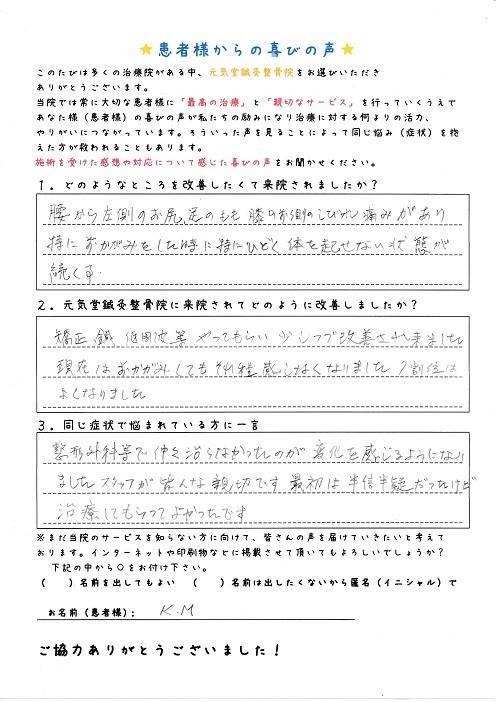 ★患者様からの喜びの声★
このたびは多くの治療院がある中、元気堂鍼灸整骨院をお選びいただき
ありがとうございます。
当院では常に大切な患者様に「最高の治療」と「親切なサービス」を行っていくうえで
あなた様（患者様）の喜びの声が私たちの励みになり治療に対する何よりの活力、
やりがいにつながっています。そういった声を見ることによって同じ悩み（症状）を抱え
た方が救われることもあります。
施術を受けた感想や対応について感じた喜びの声をお聞かせください。
1．どのようなところを改善したくて来院されましたか？
腰から左側のお尻、足のもも 膝のお側のしびれ 痛みがあり
特におかがみをした時に特にひどく 体を起せない状態が
続く
2．元気堂鍼灸整骨院に来院されてどのように改善しましたか？
矯正 鍼 低周波等 やってもらい 少しづつ改善され来ました
現在はおかがみしても それ程感じなくなりました 7割位は
よくなりました
3．同じ症状で悩まれている方に一言
整形外科等で仲々治らなかったのが 変化を感じるようになり
ました スタッフが皆んな親切です 最初は半信半疑だったけど
治療してもらってよかったです
※まだ当院のサービスを知らない方に向けて、皆さんの声を届けていきたいと考えて
おります。インターネットや印刷物などに掲載させて頂いてもよろしいでしょうか？
下記の中から〇をお付け下さい。
（　）名前を出してもよい　（　）名前は出したくないから匿名（イニシャル）で
お名前（患者様）： K.M
ご協力ありがとうございました！